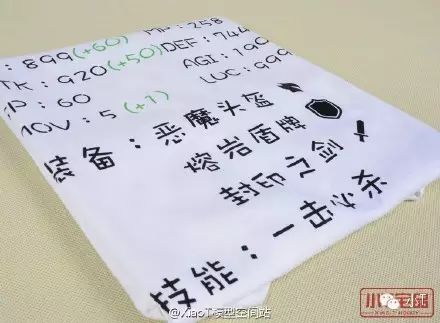 : 899(+60) MP : 258
TK : 920(+50) DEF : 744
P : 60 AGI : 190
MOV : 5(+1) LUC : 999
装备：恶魔头盔
熔岩盾牌
封印之剑
技能：一击必杀
@XiaoT模型空间站